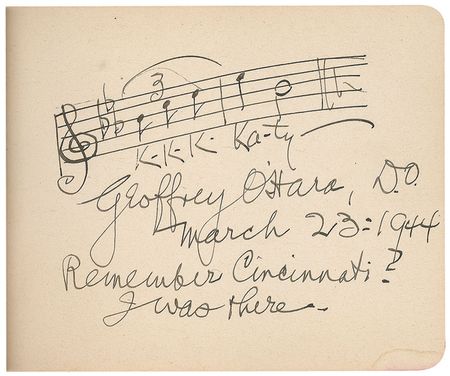 3
K-K-K- Ka-ty
Geoffrey O'Hara, D.O.
March 23=1944
Remember Cincinnati?
I was there.